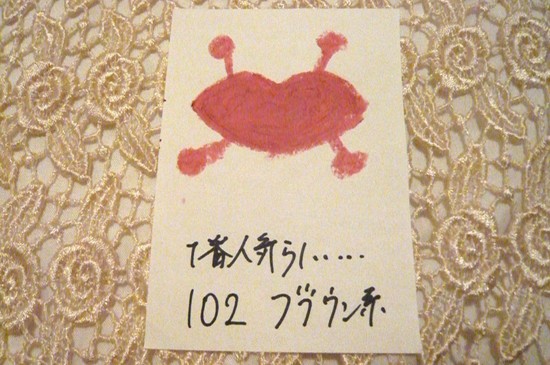 1番人気らし.....
102 ブラウン系